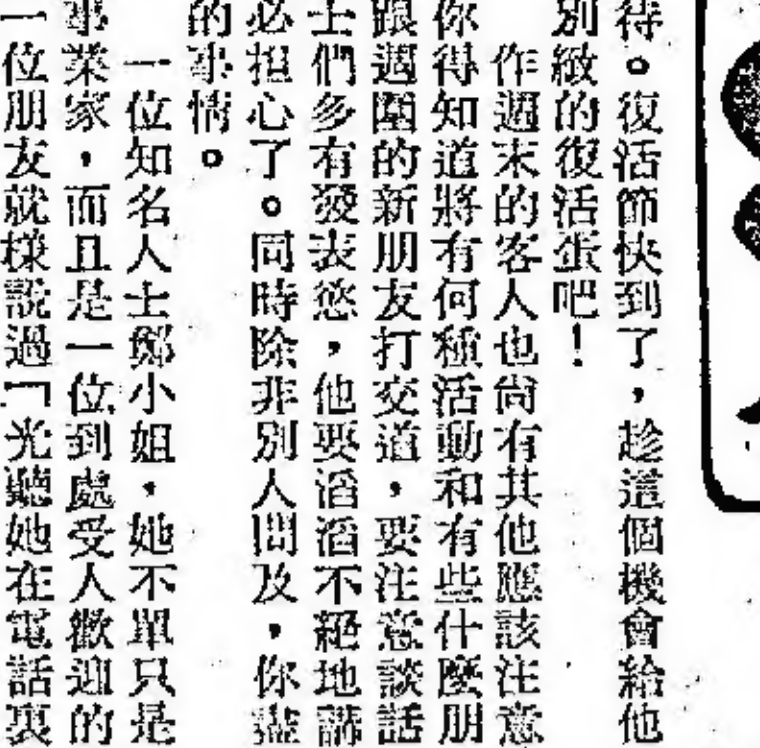 待。復活節快到了，趁這個機會給他
別緻的復活蛋吧！
作週末的客人也尚有其他應該注意
你得知道將有何種活動和有些什麼朋
跟週圍的新朋友打交道，要注意談話
士們多有發表慾，他要滔滔不絕地講
必担心了。同時除非別人問及，你儘
的事情。
一位知名人士鄭小姐，她不單只是
事業家，而且是一位到處受人歡迎的
一位朋友就樣說過「光聽她在電話裏